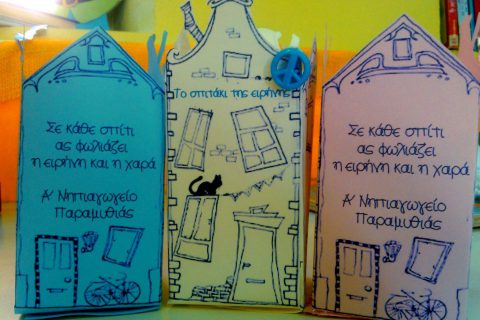 Σε κάθε σπίτι
ας φωλιάζει
η ειρήνη και η χαρά
Α' Νηπιαγωγείο
Παραμυθιάς
Το σπιτάκι της ειρήνης
Σε κάθε σπίτι
ας φωλιάζει
η ειρήνη και η χαρά
Α' Νηπιαγωγείο
Παραμυθιάς